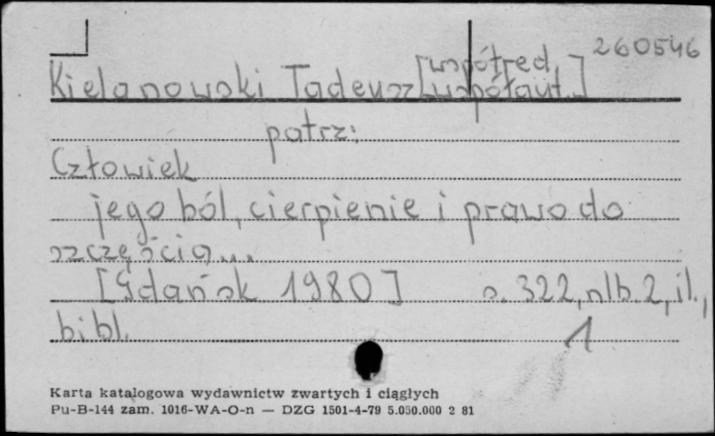 [współred. 260546
Kielanowski Tadeusz [współaut.]
patrz:
Człowiek
jego ból, cierpienie i prawo do
szczęścia...
[Gdańsk 1980] s. 322, nlb. 2, il.,
bibl. 1
Karta katalogowa wydawnictw zwartych i ciągłych
Pu-B-144 zam. 1016-WA-O-n — DZG 1501-4-79 5.050.000 2 81